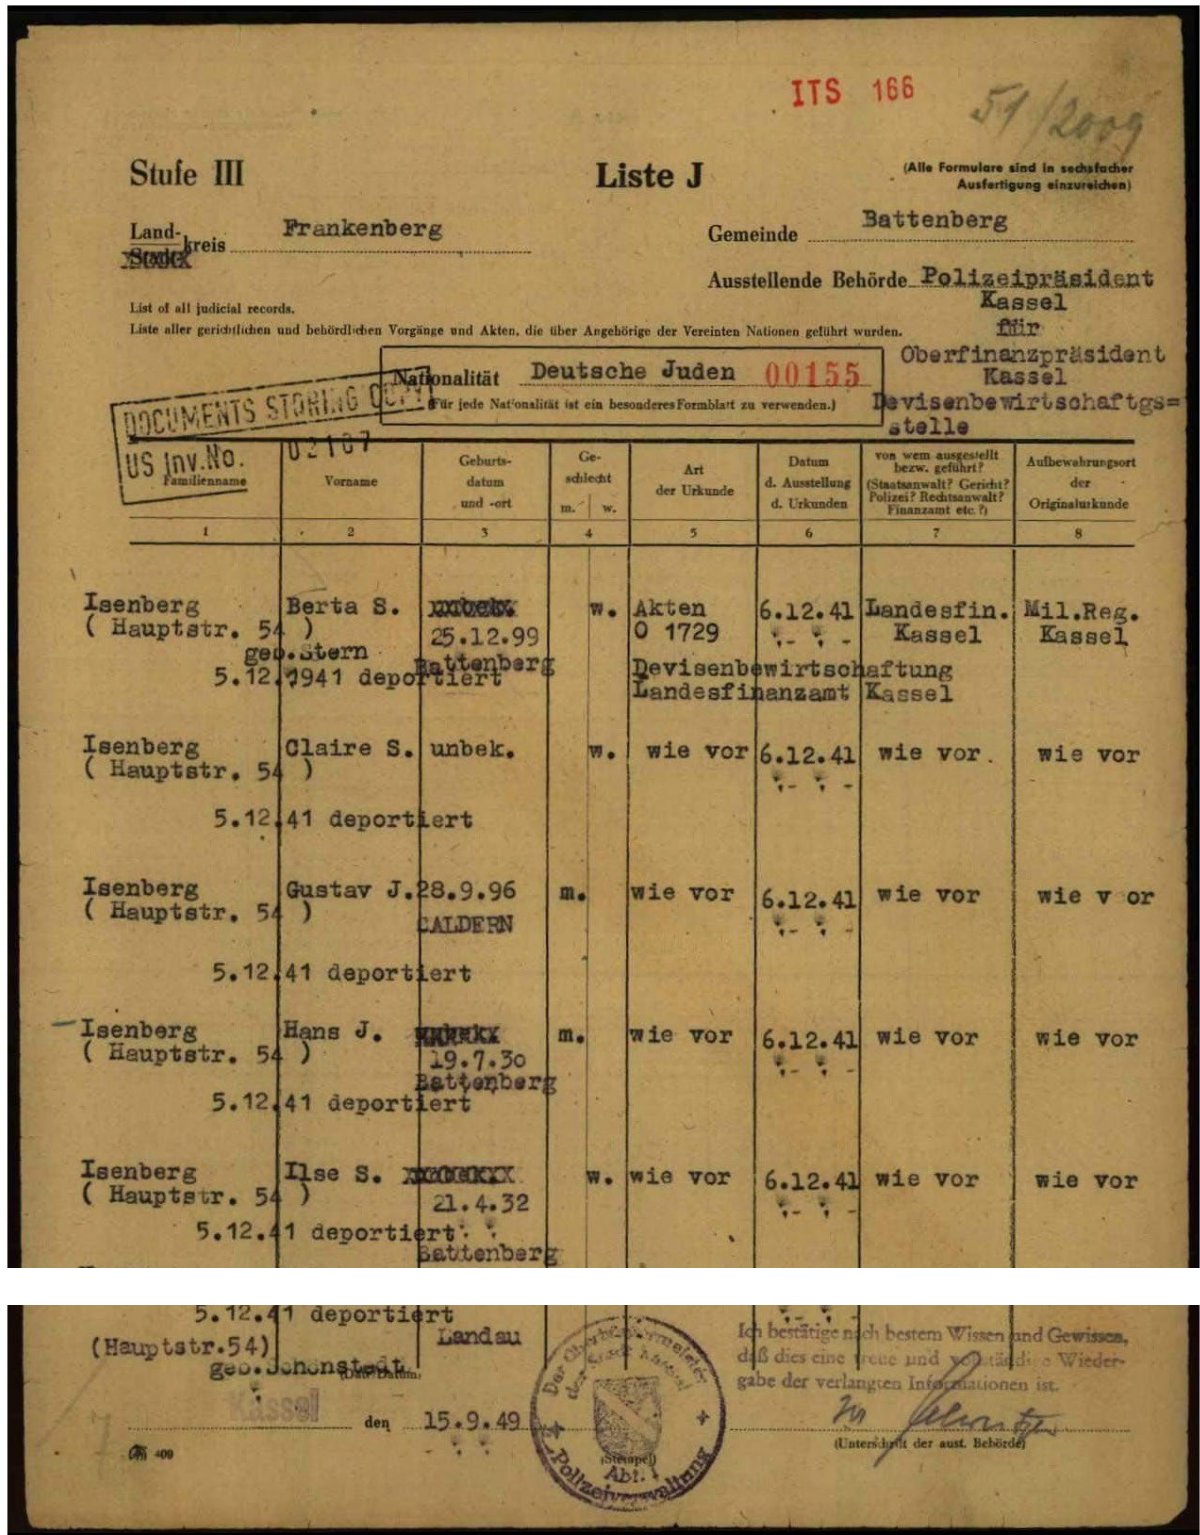 ITS 166
51/2009
Stufe III
Liste J
(Alle Formulare sind in sechsfacher
Ausfertigung einzureichen)
Land-
Stadt
kreis Frankenberg
Gemeinde Battenberg
Ausstellende Behörde Polizeipräsident
Kassel
für
Oberfinanzpräsident
Kassel
Devisenbewirtschaftgs=
stelle
List of all judicial records.
Liste aller gerichtlichen und behördlichen Vorgänge und Akten, die über Angehörige der Vereinten Nationen geführt wurden.
Nationalität Deutsche Juden 00155
(Für jede Nationalität ist ein besonderes Formblatt zu verwenden.)
DOCUMENTS STORING
US Inv.No. 02167
Familienname
Vorname
Geburts-
datum
und -ort
Ge-
schlecht
m. w.
Art
der Urkunde
Datum
d. Ausstellung
d. Urkunden
von wem ausgestellt
bezw. geführt?
(Staatsanwalt? Gericht?
Polizei? Rechtsanwalt?
Finanzamt etc.?)
Aufbewahrungsort
der
Originalurkunde
1 2 3 4 5 6 7 8
Isenberg Berta S. w. Akten 6.12.41 Landesfin. Mil.Reg.
( Hauptstr. 54 ) 25.12.99 O 1729 Kassel Kassel
geb.Stern Battenberg Devisenbewirtschaftung
5.12.1941 deportiert Landesfinanzamt Kassel
Isenberg Claire S. unbek. w. wie vor 6.12.41 wie vor. wie vor
( Hauptstr. 54 )
5.12.41 deportiert
Isenberg Gustav J. 28.9.96 m. wie vor 6.12.41 wie vor wie v or
( Hauptstr. 54 ) CALDERN
5.12.41 deportiert
Isenberg Hans J. m. wie vor 6.12.41 wie vor wie vor
( Hauptstr. 54 ) 19.7.30
Battenberg
5.12.41 deportiert
Isenberg Ilse S. w. wie vor 6.12.41 wie vor wie vor
( Hauptstr. 54 ) 21.4.32
5.12.41 deportiert
Battenberg
5.12.41 deportiert
(Hauptstr.54) Landau
geb.Schönstedt
(Date/Datum)
Kassel den 15.9.49
400
Der Oberbürgermeister
der Stadt Kassel
(Stempel)
Abt. I
Polizeiverwaltung
Ich bestätige nach bestem Wissen und Gewissen,
daß dies eine treue und vollständige Wieder-
gabe der verlangten Informationen ist.
(Unterschrift der aust. Behörde)